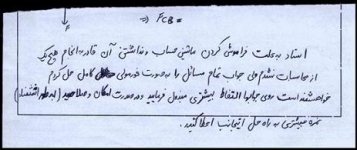 => FCB =
F
استاد به علت فراموشی کردن ماشین حساب و نداشتن آن قادر به انجام هیچ یک
از محاسبات نشدم ولی جناب تمام مسائل را به صورت فرمولی کامل حل کردم
خواهشمند است روی جوابها التفاط بیشتری مبذول فرمایید و در صورت امکان و صلاحدید
نمره بیشتری به راه حل اینجانب اعطا کنید.